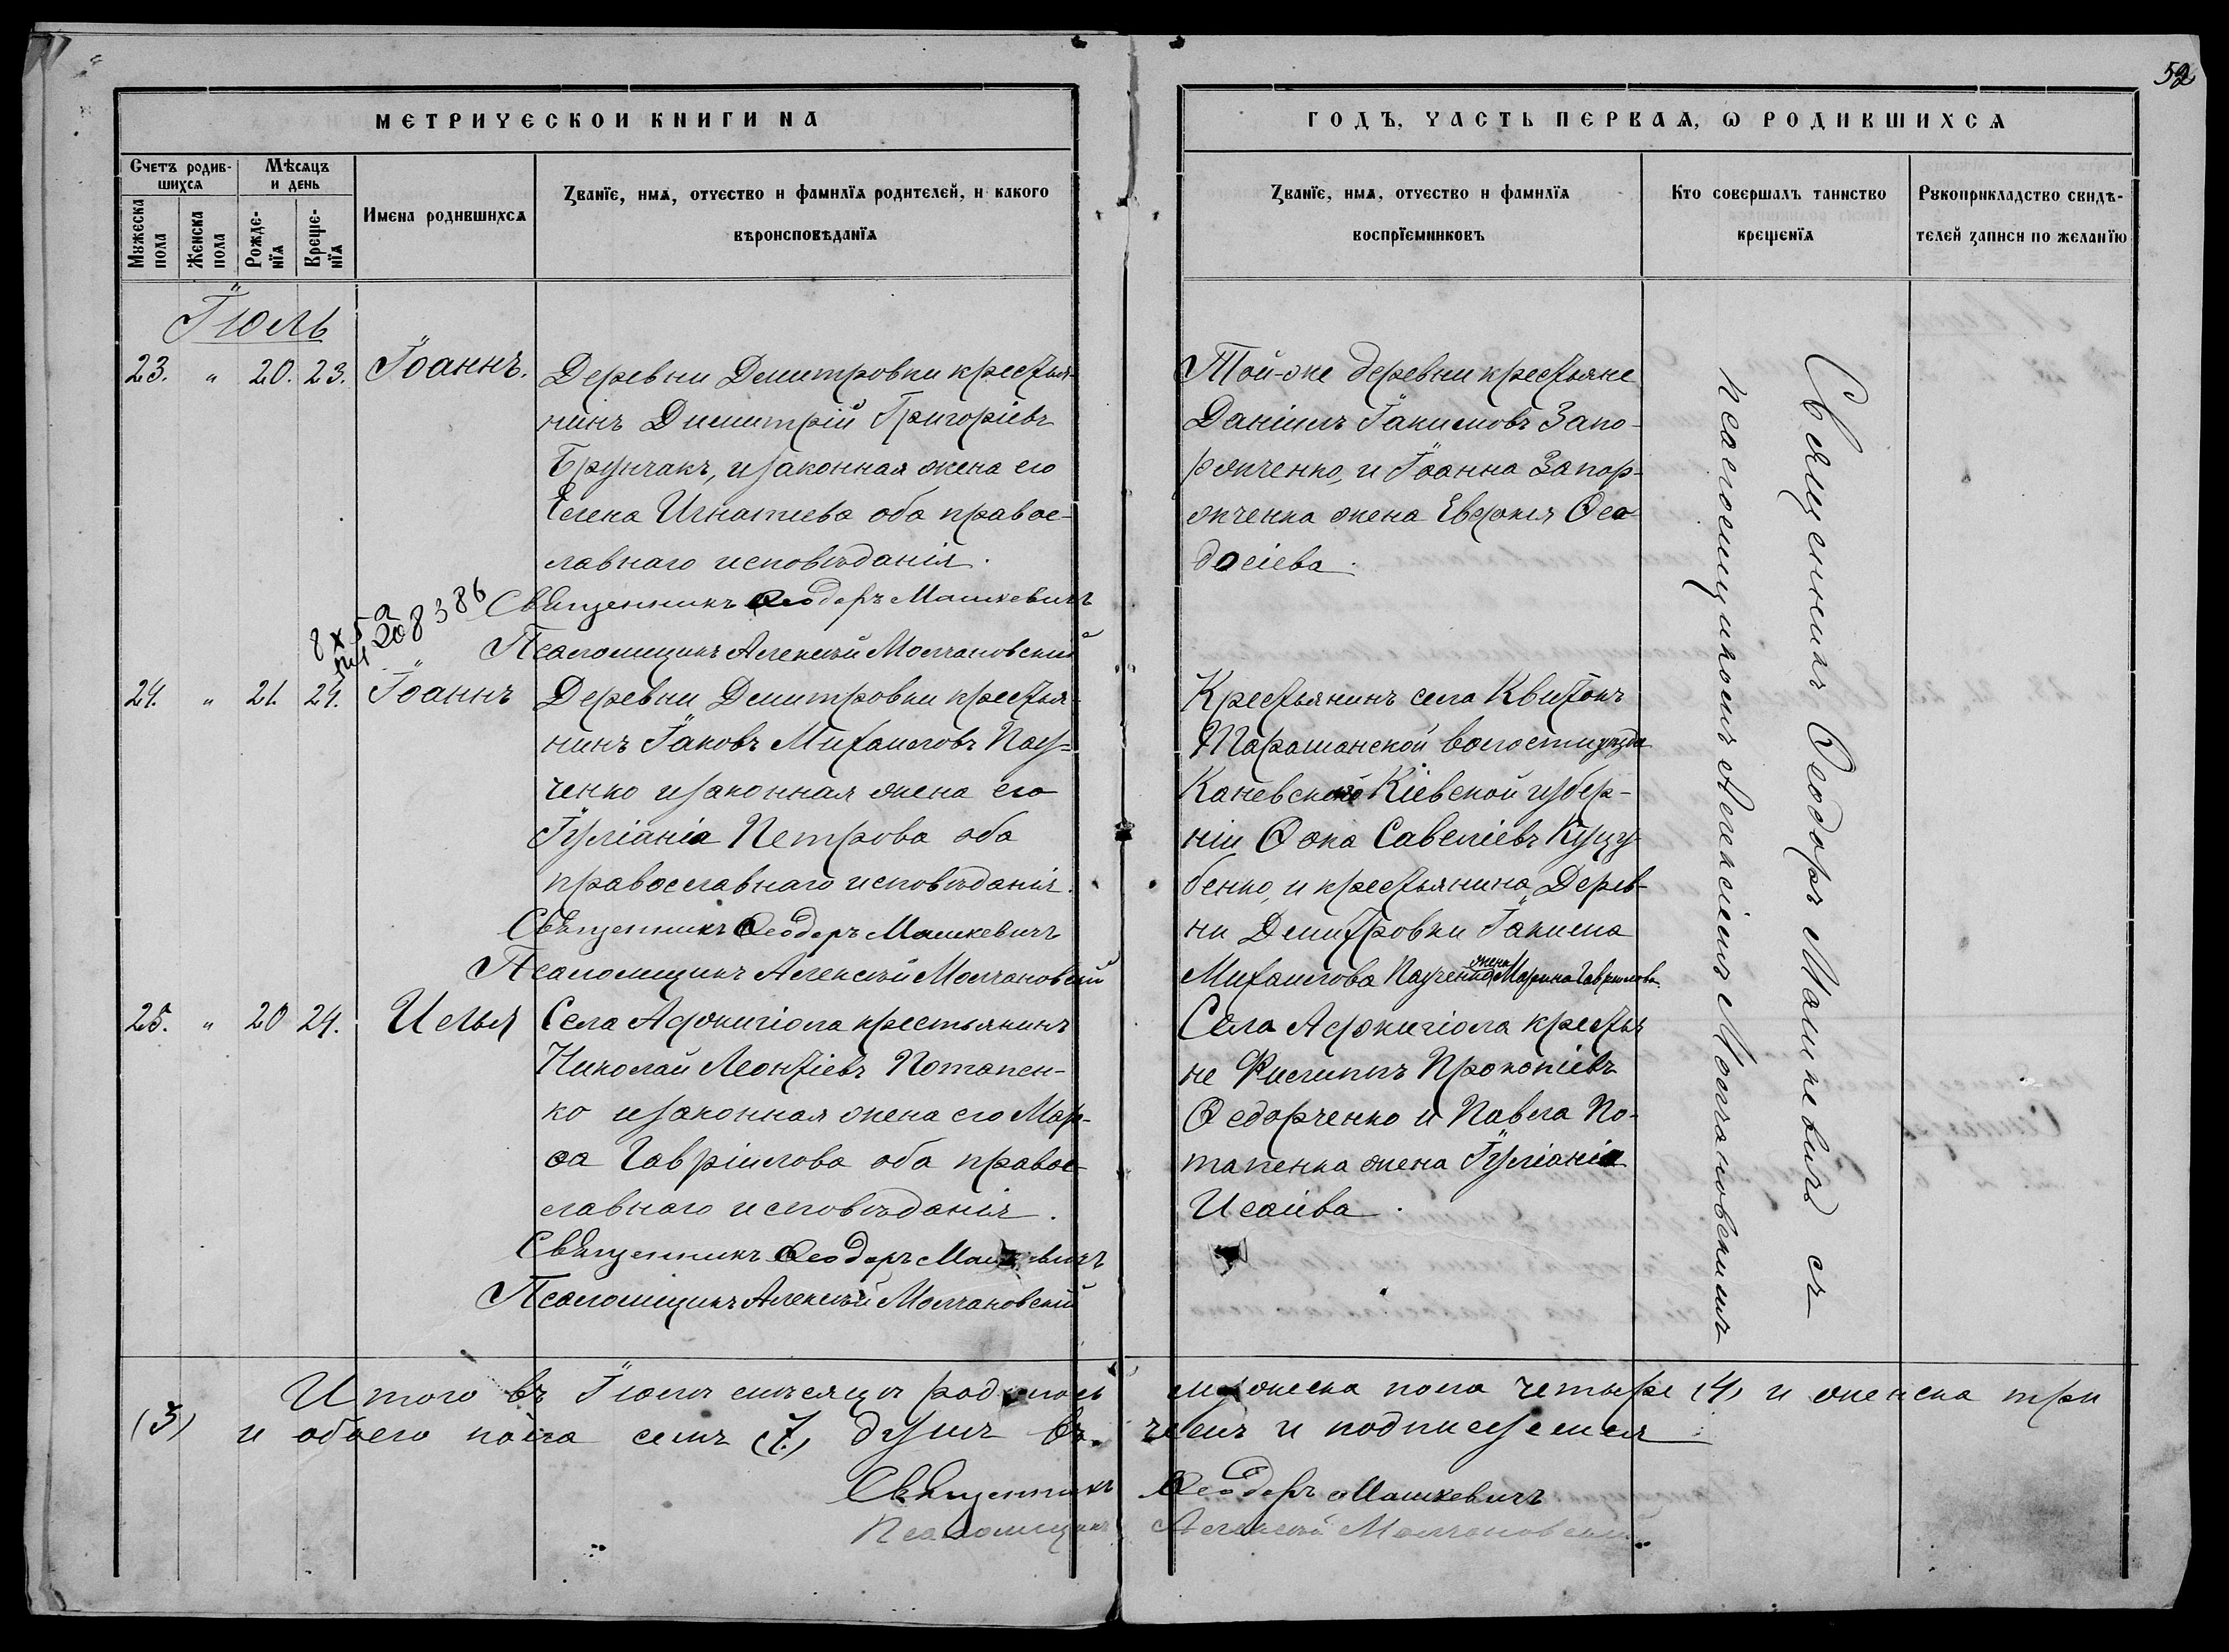 52
МЕТРИЧЕСКОЙ КНИГИ НА
ГОДЪ, ЧАСТЬ ПЕРВАѦ, Ѡ РОДИВШИХСѦ
Счетъ родив-
шихсѧ
Мѣсѧцъ
и день
Мꙋжеска
пола
Женска
пола
Рожде-
нїѧ
Креще-
нїѧ
Имена родившихсѧ
Званїе, имѧ, отчество и фамилїѧ родителей, и какого
вѣроисповѣданїѧ
Званїе, имѧ, отчество и фамилїѧ
воспрїемниковъ
Кто совершалъ таинство
крещенїѧ
Рꙋкоприкладство свидѣ-
телей записи по желанїю
Іюль
23. " 20. 23. Іоаннъ.
Деревни Демитровки крестья-
нинъ Димитрій Григоріевъ
Брунчакъ, и законная жена его
Елена Игнатиева оба правос-
лавнаго исповѣданія.
Священникъ Ѳеодоръ Машкевичъ
Псаломщикъ Алексѣй Молчановскій
Той-же деревни крестьяне
Даніилъ Іакимовъ Запо-
рожченко, и Іоанна Запор-
жченка жена Евфокія Ѳео-
досіева.
24. " 21. 24. Іоаннъ
Деревни Демитровки крестья-
нинъ Іаковъ Михаиловъ Пау-
ченко и законная жена его
Іуліанія Петрова оба
православнаго исповѣданія.
Священникъ Ѳеодоръ Машкевичъ
Псаломщикъ Алексѣй Молчановскій
Крестьянинъ села Квитокъ
Шарашанской волости уѣзда
Каневскаго Кіевской губер-
ніи Ѳока Савеліевъ Куцу-
бенко, и крестьянина Дерев-
ни Демитровки Іакима
жена
Михаилова Паученко Марина Гаврилова.
25. " 20 24. Илья
Села Аджигіола крестьянинъ
Николай Леонтіевъ Потапен-
ко и законная жена его Мар-
ѳа Гавріилова оба правос-
лавнаго исповѣданія.
Священникъ Ѳеодоръ Машкевичъ
Псаломщикъ Алексѣй Молчановскій
Села Аджигіола крестья
не Филиппъ Прокопіевъ
Ѳедорченко и Павла По-
тапенка жена Іуліанія
Исаіева.
Священникъ Ѳеодоръ Машкевичъ съ
псаломщикомъ Алексіемъ Молчановскимъ
Итого въ Іюлѣ мѣсяцѣ родилось мужеска пола четыре (4) и женска три
(3) и обоего пола семъ (7) душъ въ чемъ и подписуемся
Священникъ Ѳеодоръ Машкевичъ
Псаломщикъ Алексѣй Молчановскій